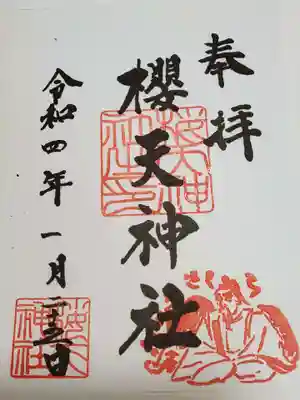 奉拝
櫻天神社
令和四年一月二十三日
さくら